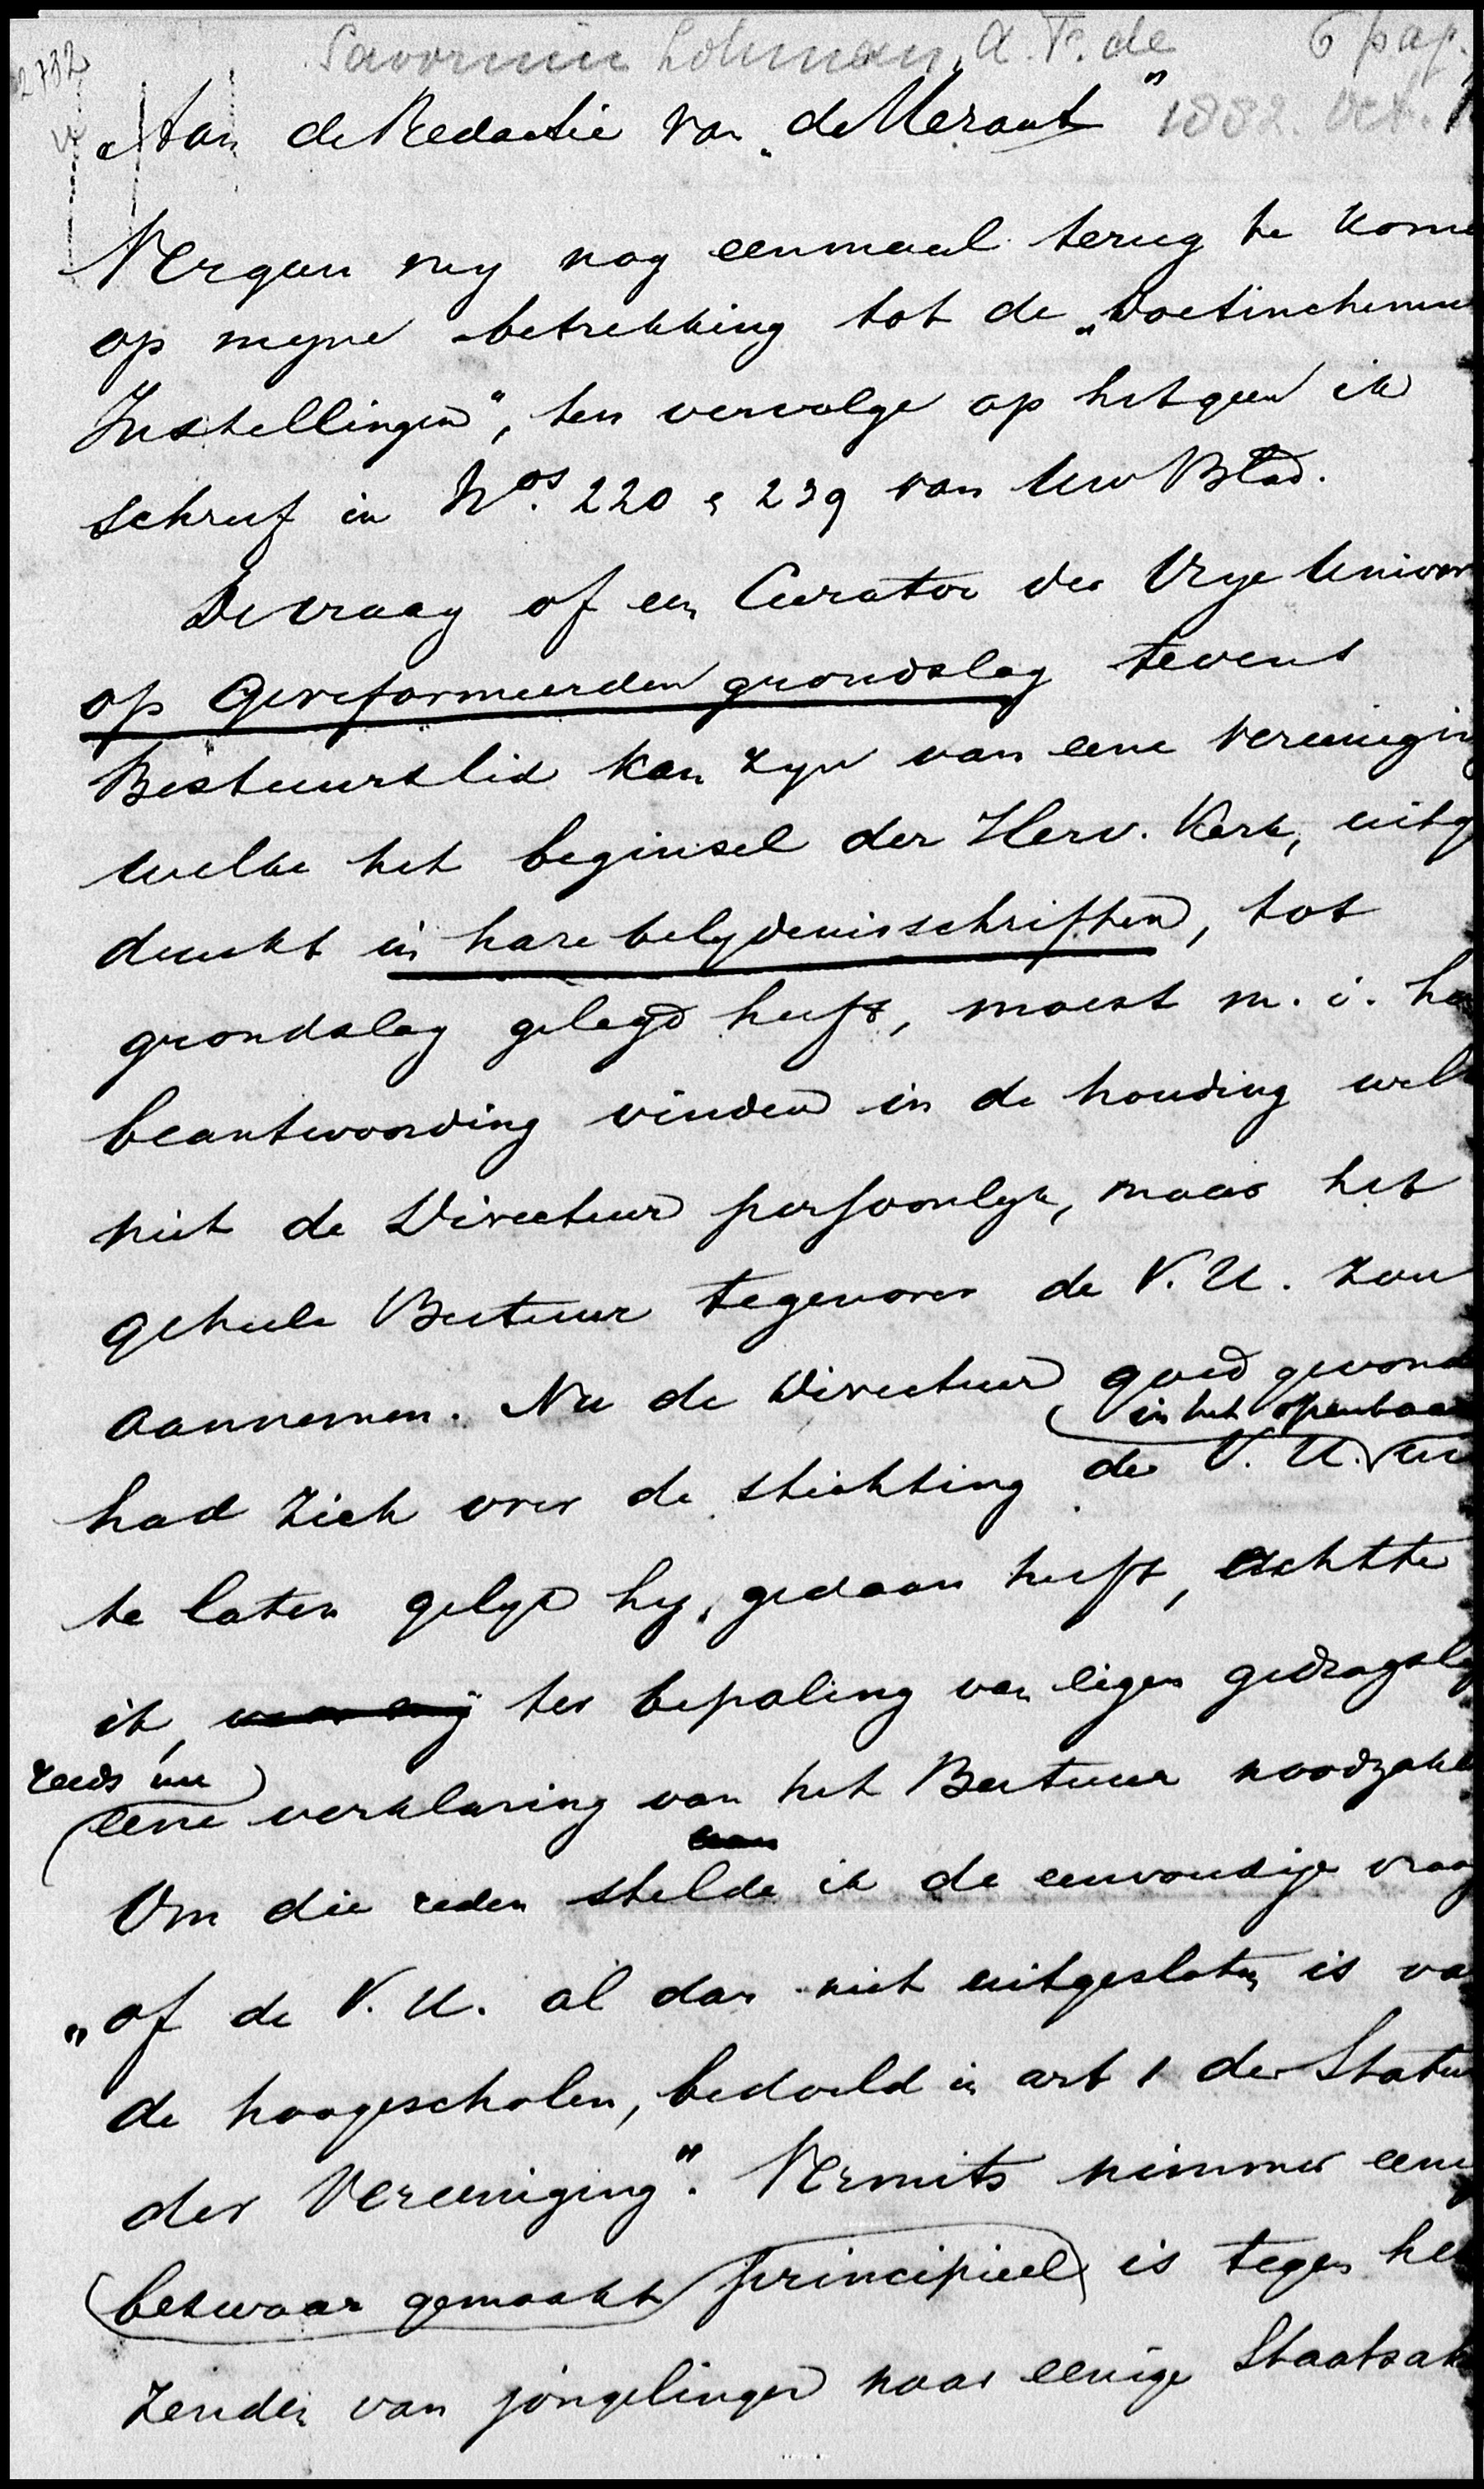 2732
Savornin Lohman, A. F. de 6 pag.
1882. Oct.
Aan de Redactie van „de Heraut”
Vergun my nog eenmaal terug te kome
op myne betrekking tot de „Doetinchemse
Instellingen”, ten vervolge op hetgeen ik
schreef in Nos. 220 & 239 van Uw Blad.
De vraag of een Curator der Vrye Univer
op Gereformeerden grondslag tevens
Bestuurslid kan zyn van eene vereenigin
welke het beginsel der Herv. Kerk, uitg
drukt in hare belydenisschriften, tot
grondslag gelegd heeft, moest m. i. ha
beantwoording vinden in de houding wel
niet de Directeur persoonlyk, maar het
geheele Bestuur tegenover de V. U. zou
aannemen. Nu de Directeur goed gevond
in het openbaar
had zich over de stichting der V. U. ui
te laten gelyk hy gedaan heeft, achtte
ik, ter bepaling van eigen gedragsly
reeds nu
eene verklaring van het Bestuur noodzake
Om die reden stelde ik de eenvoudige vraag
„of de V. U. al dan niet uitgesloten is va
de hoogescholen, bedoeld in art 1 der Statu
der Vereeniging”. Vermits nimmer eeni
bezwaar gemaakt principieel is tegen he
zenden van jongelingen naar eenige Staatsak